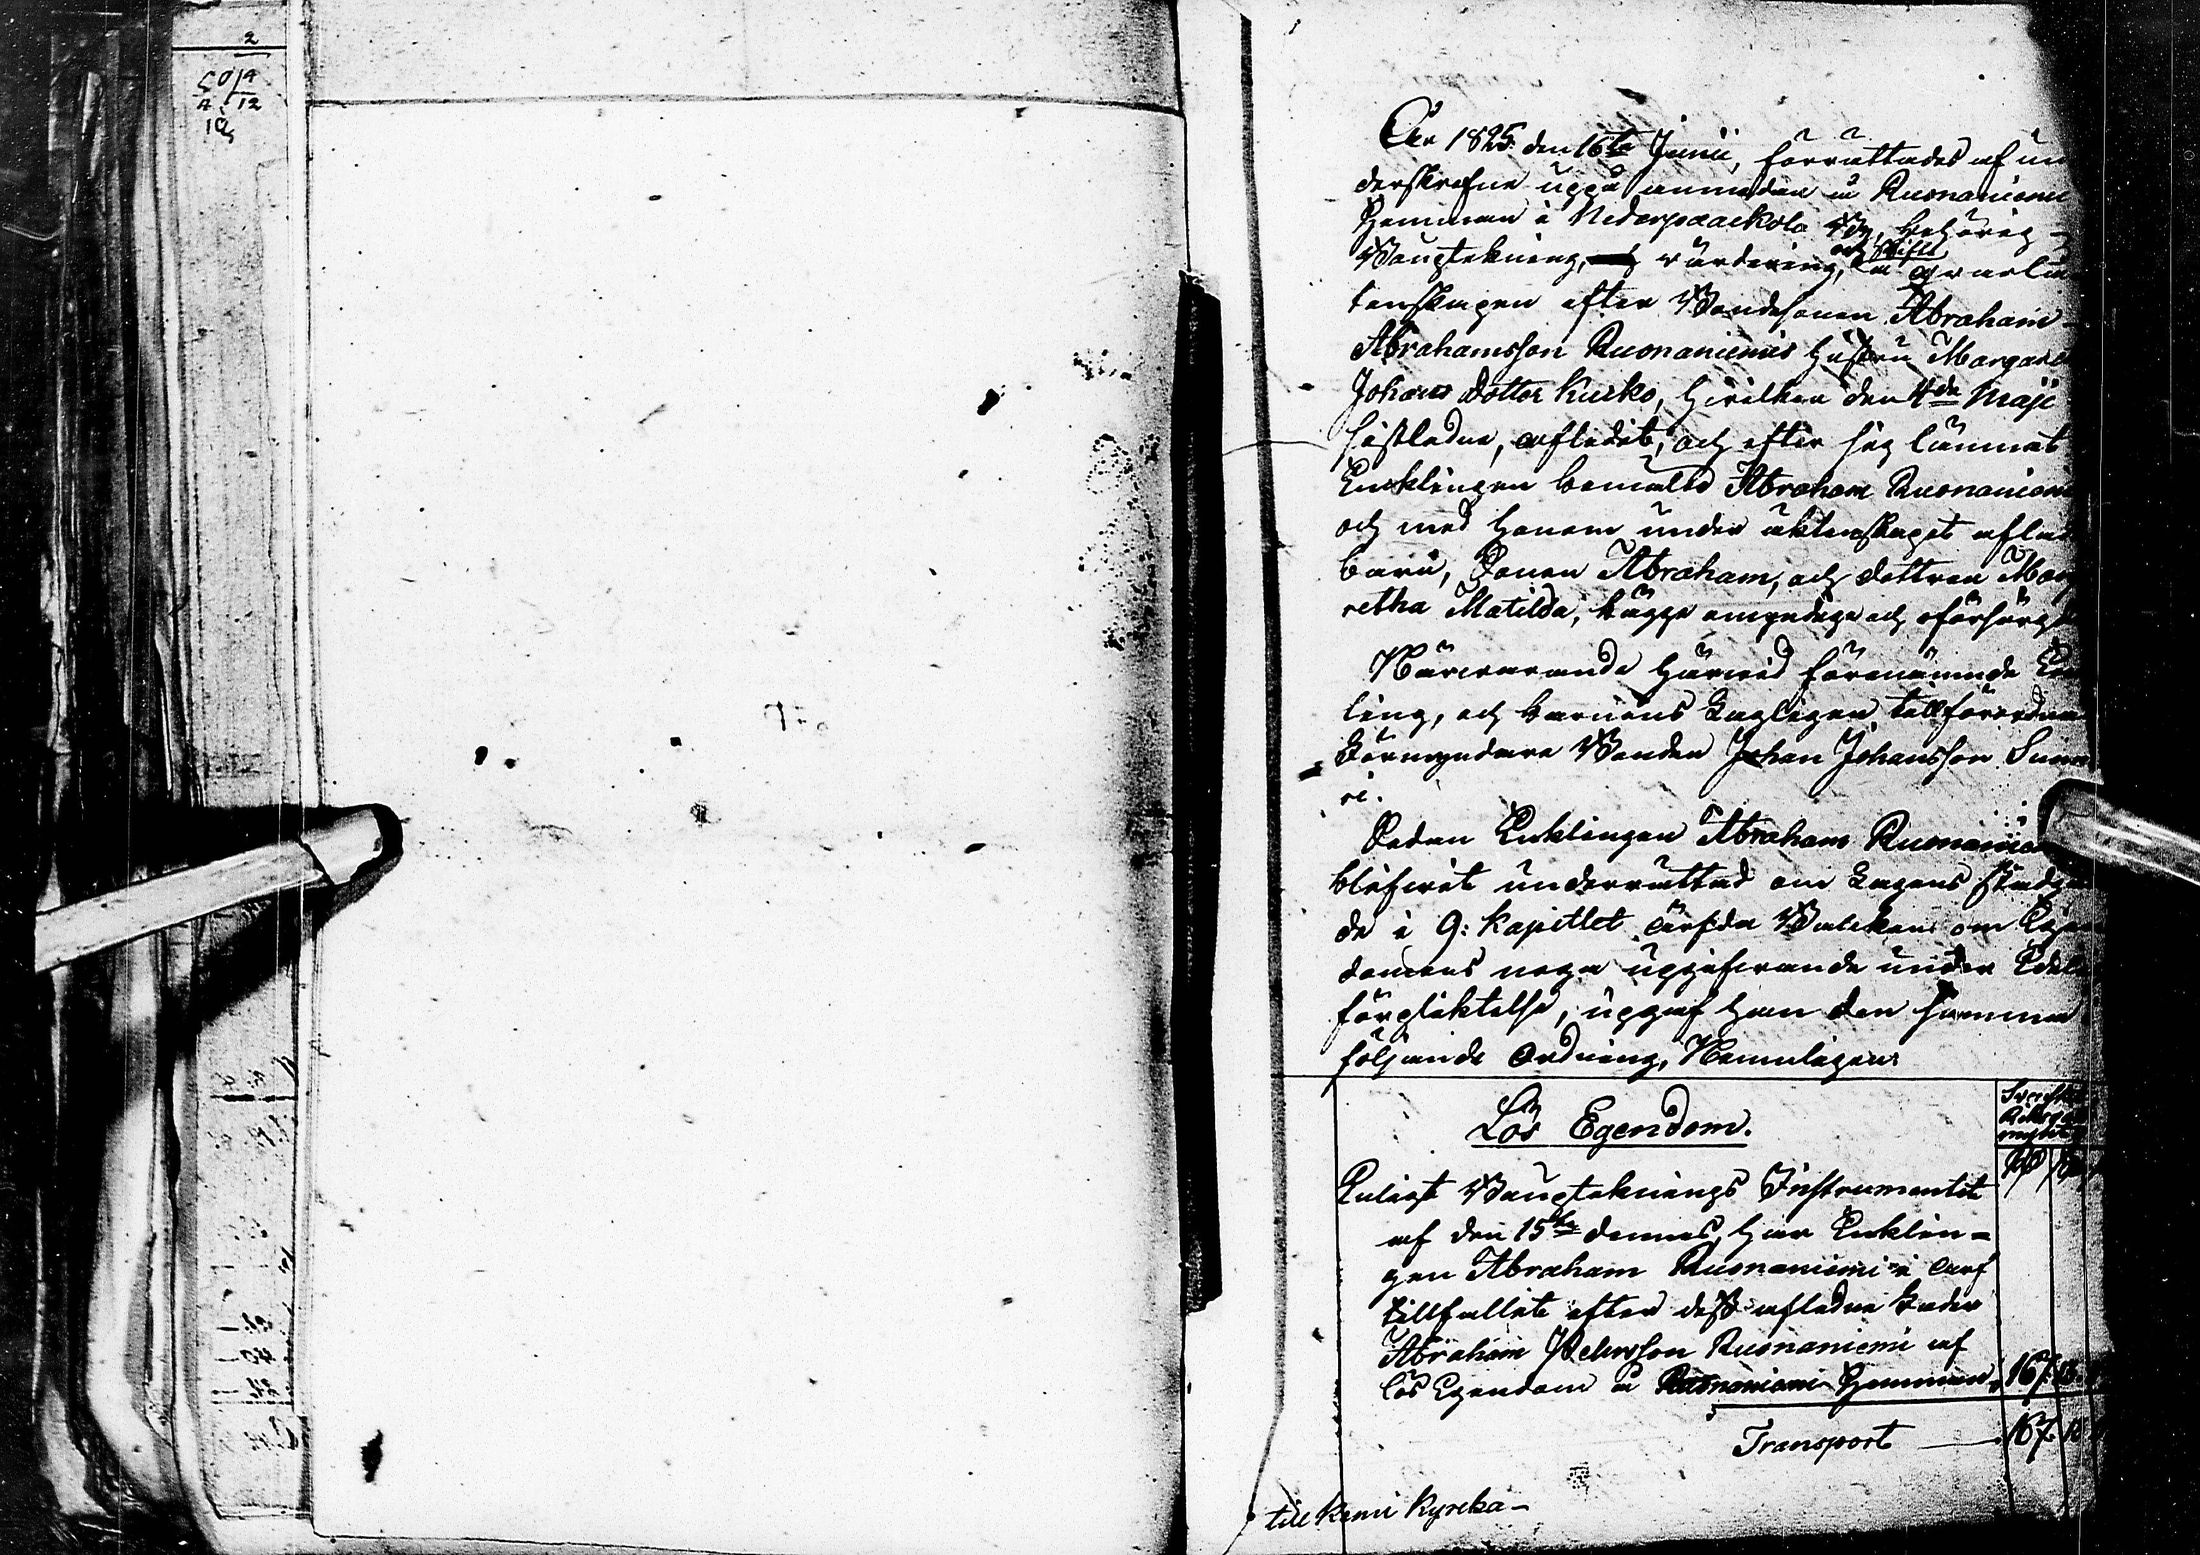 2
År 1825 den 16de Junii, förrättades af un
derskrefne uppå anmodan å Ruonaniemi
Hemman i Nederpaackola By, behörig
Bouptekning, värdering, och skifte å qvarlå
tenskapen efter Bondesonen Abraham
Abrahamsson Ruonaniemis hustru Margare
Johans dotter Kusko, hvilken den 4de Maji
sistledne, aflidit, och efter sig lämnat
Enklingen bemälte Abraham Ruonaniemi
och med honom under äktenskapet aflad
barn, Sonen Abraham, och dottren Mar
retha Matilda, bägge omyndige och oförsörgd
Närvarande härvid förenämnde En
ling, och barnens Lagligen tillförordna
Förmyndare Bonden Johan Johansson Suma
ri.
Sedan Enklingen Abraham Ruonaniemi
blifvit underrättad om Lagens stadgan
de i 9: Kapitlet Ärfda Balken om Egen
domens noga uppgifvande under Edel
förpliktelse, uppgaf han den samma
följande Ordning, Nemnligen:
Lös Egendom.
Enligt Bouptekningsinstrumentet
af den 15de dennes, har Enklin-
gen Abraham Ruonaniemi i arf
tillfallit efter dess aflidne Fader
Abraham Pehrsson Ruonaniemi af
lös Egendom å Ruonaniemi Hemman, 167
Transport 167
till Kemi Kyrcka